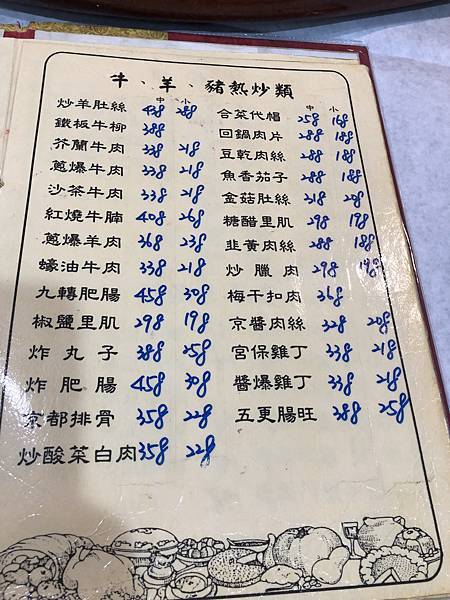 牛、羊、豬熱炒類
中 小
炒羊肚絲 438 288
鐵板牛柳 388
芥蘭牛肉 338 218
蔥爆牛肉 338 218
沙茶牛肉 338 218
紅燒牛腩 408 268
蔥爆羊肉 368 238
蠔油牛肉 338 218
九轉肥腸 458 308
椒鹽里肌 298 198
炸丸子 388 258
炸肥腸 458 308
京都排骨 358 228
炒酸菜白肉 358 228
中 小
合菜代帽 258 168
回鍋肉片 288 188
豆乾肉絲 288 188
魚香茄子 288 188
金菇肚絲 318 208
糖醋里肌 298 198
韭黃肉絲 288 188
炒臘肉 298 198
梅干扣肉 368
京醬肉絲 328 208
宮保雞丁 338 218
醬爆雞丁 338 218
五更腸旺 388 258